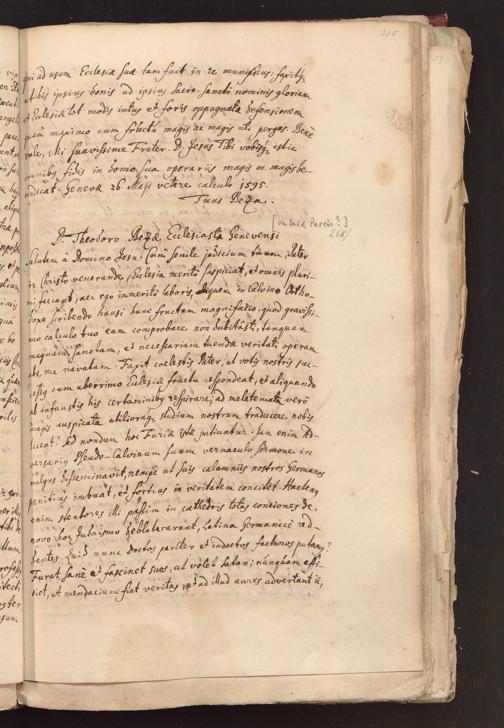 qui ad usum Ecclesiæ suæ tam fuit in te munificus: faxitq;
ut his ipsius bonis ad ipsius sacro-sancti nominis gloriam
et Ecclesiæ tot modis intus et foris oppugnatæ defensionem
quàm maximo cum fructu magis ac magis uti pergas. Bene
vale, Mi suavissime Frater. D. Jesus Tibi vobisq; istic
omnibq fidis in domo sua operariis magis ac magis be-
nedicat. Genevæ 26 Maji vetere calculo 1595.
Tuus Beza.
D. Theodoro Bezæ Ecclesiastæ Genevensi
Salutem à Domino Jesu. Cùm senile judicium tuum, Pater
in Christo venerande, Ecclesia meritò suspiciat, et omnes pluri-
mi faciant, nec ego immeritò laboris, quem in Calvino Ortho-
doxo scribendo hausi hunc fructum magnifacio, quod gravissi-
mo calculo tuo eam comprobare non dubitâsti, tanquam
magnam, sanctam, et necessariam tuendæ veritati operam
à me navatam. Faxit coelestis Pater, ut votis nostris suc-
cessq cum uberrimo Ecclesiæ fructu respondeat, et aliquando
ab infaustis his certaminibq respirare, ad meletemata verò
magis auspicata utilioraq; studium nostrum traducere nobis
liceat. Ad nondum hoc Furiæ istæ patiuntur. Jam enim Ad-
versariq Pseudo-Calvinum suum vernaculo sermone in
vulgus disseminavit, nempe ut suis calumniis nostros Germanos
penitius imbuat, et fortius in veritatem concitet. Hactenq
enim stentores illi passim in cathedris totas conciones de
novo hoc Judaismo deblaterarant, Latina Germanicè red-
dentes. Quid nunc doctos pariter et indoctos facturos putamq?
Furat sanè et fascinet suos, ut volet Satan; nunquam effi-
ciet, ut mendacium fiat veritas, et ad illud aures advertant ii,